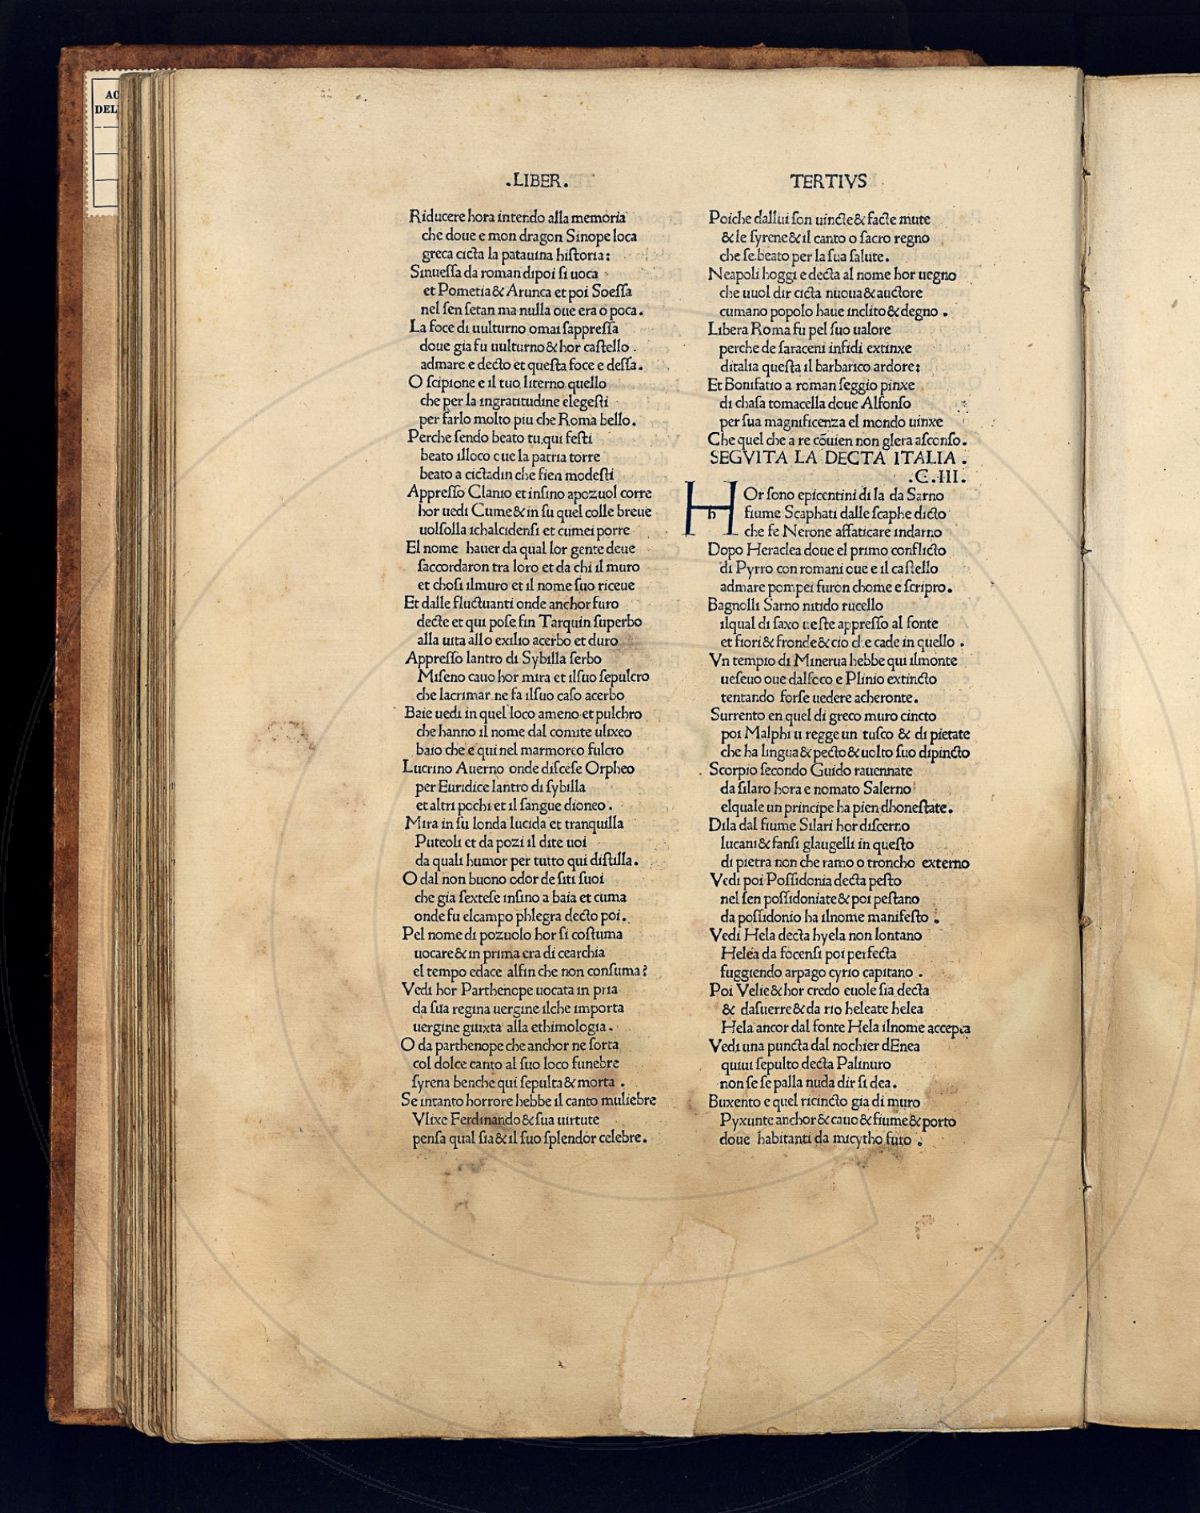 AC
DEL
.LIBER.
Riducere hora intendo alla memoria
che doue e mon dragon Sinope loca
greca cicta la patauina historia:
Sinuessa da roman dipoi si uoca
et Pometia & Arunca et poi Soessa
nel sen setan ma nulla oue era o poca.
La foce di uulturno omai sappressa
doue gia fu uulturno & hor castello .
admare e decto et questa foce e dessa.
O scipione e il tuo literno quello
che per la ingratitudine elegesti
per farlo molto piu che Roma bello.
Perche sendo beato tu.qui festi
beato illoco oue la patria torre
beato a cictadin che fien modesti
Appresso Clanio et insino apozuol corre
hor uedi Cume & in su quel colle breue
uolsolla ichalcidensi et cumei porre
El nome hauer da qual lor gente deue
saccordaron tra loro et da chi il muro
et chosi ilmuro et il nome suo riceue
Et dalle fluctuanti onde anchor furo
decte et qui pose fin Tarquin superbo
alla uita allo exilio acerbo et duro
Appresso lantro di Sybilla serbo
Miseno cauo hor mira et ilsuo sepulcro
che lacrimar ne fa ilsuo caso acerbo
Baie uedi in quel loco ameno et pulchro
che hanno il nome dal comite ulixeo
baio che e qui nel marmoreo fulcro
Lucrino Auerno onde discese Orpheo
per Euridice lantro di sybilla
et altri pochi et il sangue dioneo .
Mira in su londa lucida et tranquilla
Puteoli et da pozi il dite uoi
da quali humor per tutto qui distilla.
O dal non buono odor de siti suoi
che gia sextese insino a baia et cuma
onde fu elcampo phlegra decto poi.
Pel nome di pozuolo hor si costuma
uocare & in prima era di cearchia
el tempo edace alfin che non consuma?
Vedi hor Parthenope uocata in pria
da sua regina uergine ilche importa
uergine giuxta alla ethimologia.
O da parthenope che anchor ne sorta
col dolce canto al suo loco funebre
syrena benche qui sepulta & morta .
Se intanto horrore hebbe il canto muliebre
Vlixe Ferdinando & sua uirtute
pensa qual sia & il suo splendor celebre.
TERTIVS
Poiche dallui son uincte & facte mute
& le syrene & il canto o sacro regno
che se.beato per la sua salute.
Neapoli hoggi e decta al nome hor uegno
che uuol dir cicta nuoua & auctore
cumano popolo haue inclito & degno .
Libera Roma fu pel suo ualore
perche de saraceni infidi extinxe
ditalia questa il barbarico ardore:
Et Bonifatio a roman seggio pinxe
di chasa tomacella doue Alfonso
per sua magnificenza el mondo uinxe
Che quel che a re cōuien non glera asconso.
SEGVITA LA DECTA ITALIA .
.C.III.
H h Or sono epicentini di la da Sarno
fiume Scaphati dalle scaphe dicto
che fe Nerone affaticare indarno
Dopo Heraclea doue el primo conflicto
di Pyrro con romani oue e il castello
admare pompei furon chome e scripro.
Bagnolli Sarno nitido rucello
ilqual di saxo ueste appresso al fonte
et fiori & fronde & cio che cade in quello .
Vn tempio di Minerua hebbe qui ilmonte
ueseuo oue dalseco e Plinio extincto
tentando forse uedere acheronte.
Surrento en quel di greco muro cincto
poi Malphi u regge un tusco & di pietate
che ha lingua & pecto & uolto suo dipincto
Scorpio secondo Guido rauennate
da silaro hora e nomato Salerno
elquale un principe ha pien dhonestate.
Dila dal fiume Silari hor discerno
lucani & fansi glaugelli in questo
di pietra non che ramo o troncho externo
Vedi poi Possidonia decta pesto
nel sen possidoniate & poi pestano
da possidonio ha ilnome manifesto .
Vedi Hela decta hyela non lontano
Helea da focensi poi perfecta
fuggiendo arpago cyrio capitano .
Poi Velie & hor credo euole sia decta
& dasuerre & da rio heleate helea
Hela ancor dal fonte Hela ilnome accepta
Vedi una puncta dal nochier dEnea
quiui sepulto decta Palinuro
non se se palla nuda dir si dea.
Buxento e quel ricincto gia di muro
Pyxunte anchor & cauo & fiume & porto
doue habitanti da micytho furo .